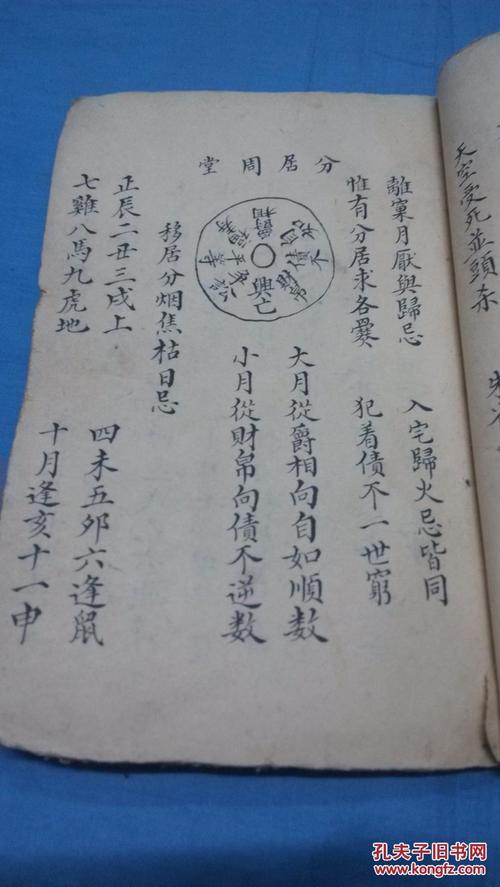 天空受死並頭杀
離窠月厭與歸忌 入宅歸火忌皆同
惟有分居求各爨 犯着債不一世窮
分居周堂
爵相
自如
債不
財帛
興亡
争訟
平等
大月從爵相向自如順数
小月從財帛向債不逆数
移居分烟焦枯日忌
正辰二丑三戌上 四未五夘六逢鼠
七雞八馬九虎地 十月逢亥十一申
孔夫子旧书网
www.kongfz.com